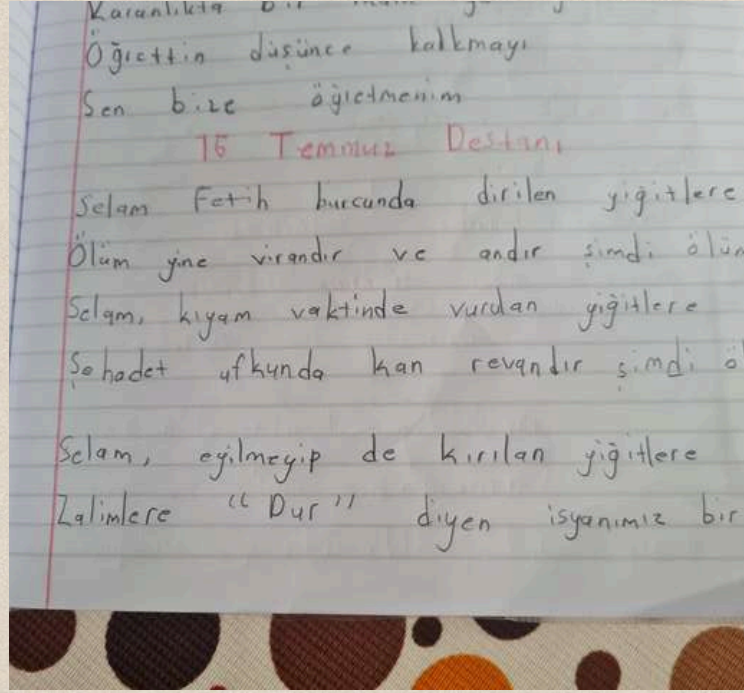 Karanlıkta bir
Öğrettin düşünce kalkmayı
Sen bize öğretmenim
15 Temmuz Destanı
Selam Fetih burcunda dirilen yiğitlere
Ölüm yine virandır ve andır şimdi
Selam, kıyam vaktinde vurulan yiğitlere
Şehadet ufkunda kan revandır şimdi
Selam, eğilmeyip de kırılan yiğitlere
Zalimlere "Dur" diyen isyanımız bir